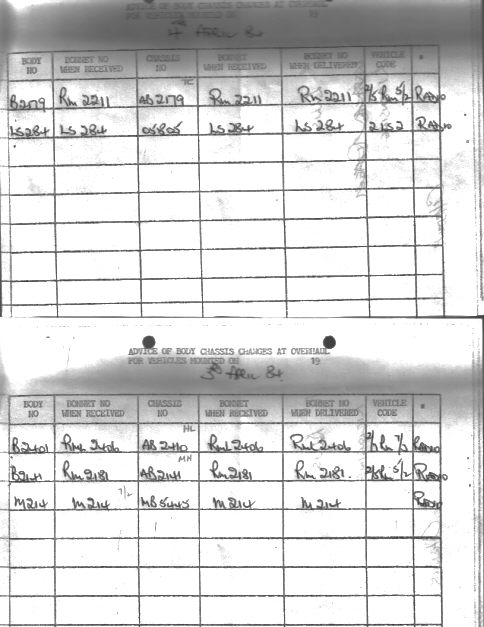 ADVICE OF BODY CHASSIS CHANGES AT OVERHAUL
FOR VEHICLES MOUNTED ON 19
4th April 84
BODY NO BONNET NO WHEN RECEIVED CHASSIS NO BONNET WHEN RECEIVED BONNET NO WHEN DELIVERED VEHICLE CODE *
B2179 Rm 2211 AB 2179 Rm 2211 Rm 2211 2/3 Rm 5/2 RADIO
LS284 LS 284 05805 LS 284 LS 284 2LS2 RADIO
ADVICE OF BODY CHASSIS CHANGES AT OVERHAUL
FOR VEHICLES MOUNTED ON 19
3rd April 84
BODY NO BONNET NO WHEN RECEIVED CHASSIS NO BONNET WHEN RECEIVED BONNET NO WHEN DELIVERED VEHICLE CODE *
HL
B2401 RmL 2406 AB 2410 RmL 2406 RmL 2406 2/3 Rm 7/3 RADIO
MH
B2141 Rm 2181 AB2141 Rm 2181 Rm 2181. 2/3 Rm 5/2 RADIO
M214 M214 7/2 MB 5445 M 214 M 214 RADIO